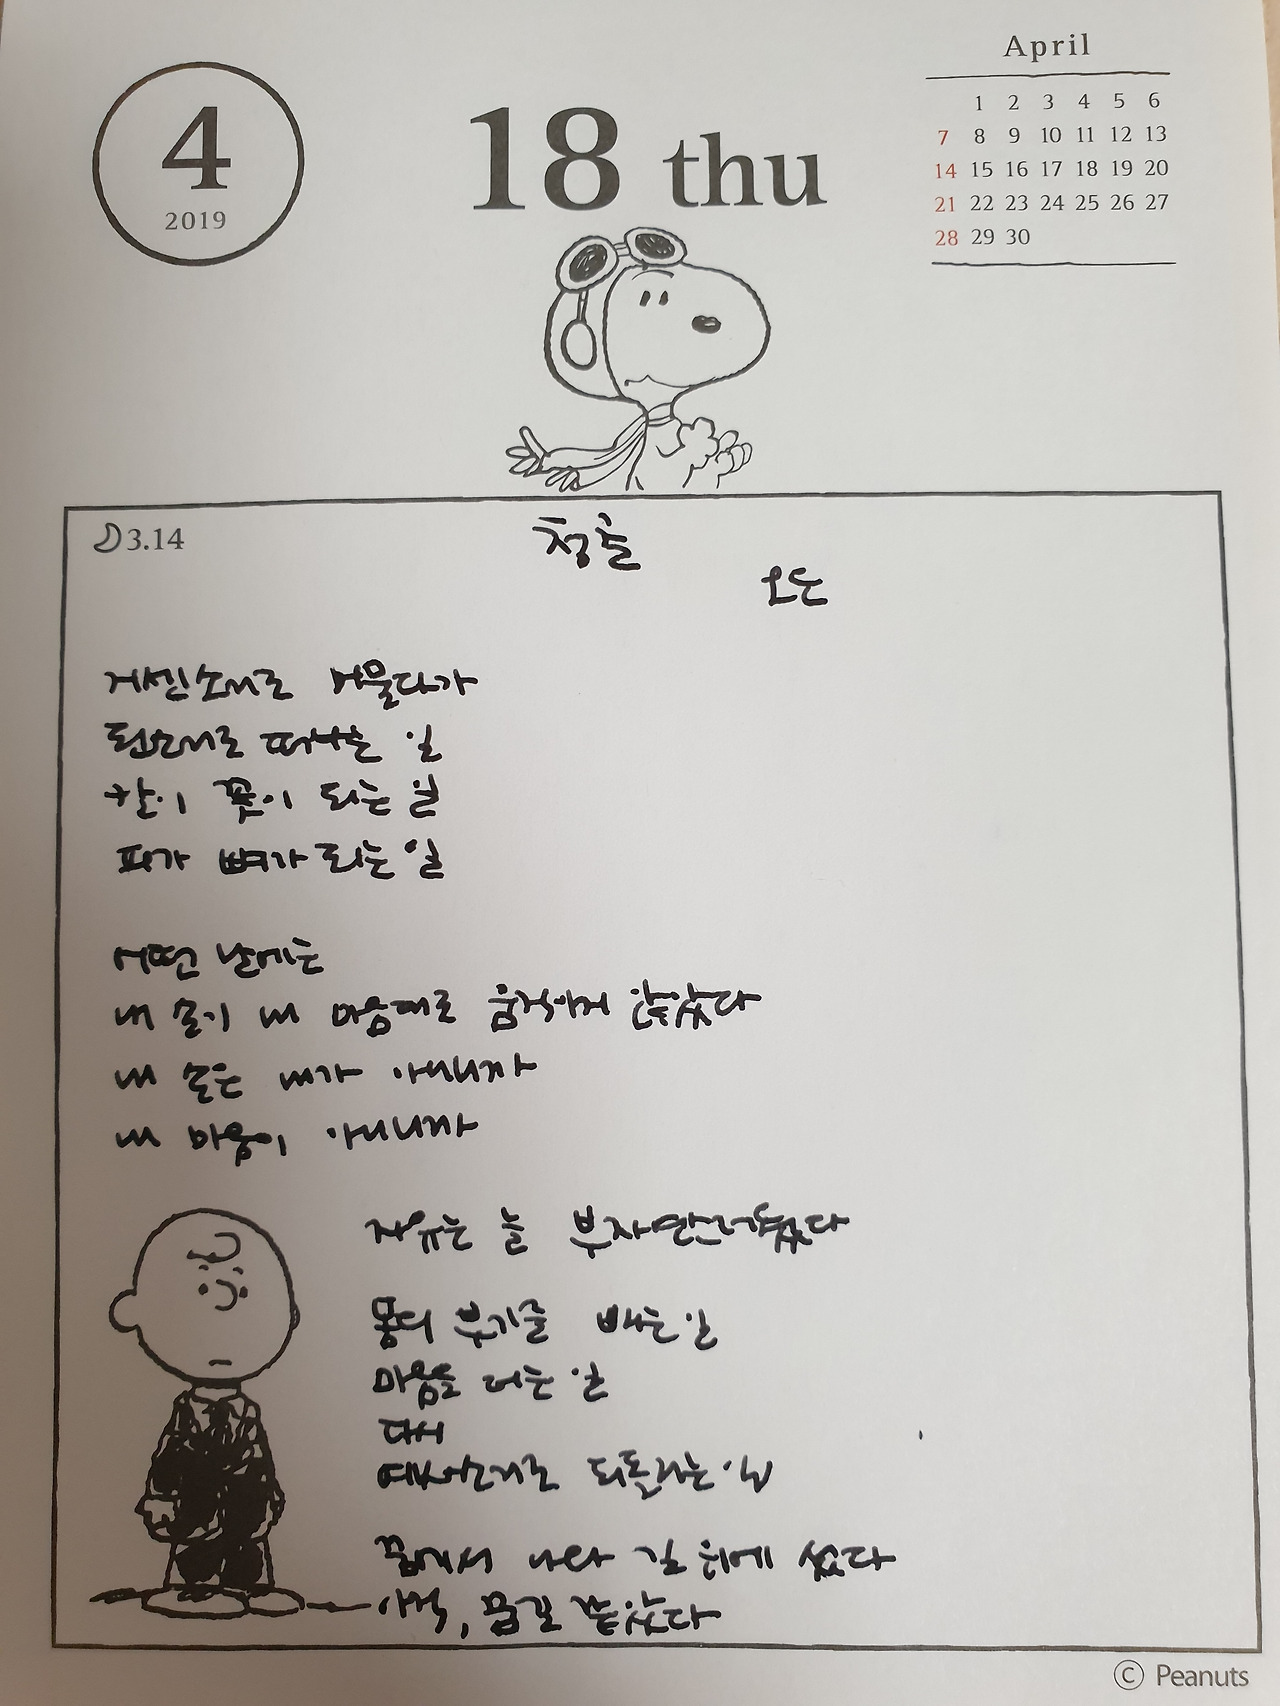 4
2019
18 thu
April
1 2 3 4 5 6
7 8 9 10 11 12 13
14 15 16 17 18 19 20
21 22 23 24 25 26 27
28 29 30
3.14
청춘
오은
거센소리로 머물다가
된소리로 떠나는 일
칼이 꽃이 되는 일
피가 뼈가 되는 일
어떤 날에는
내 손이 내 마음대로 움직이지 않았다
내 손은 내가 아니니까
내 마음이 아니니까
자유는 늘 부자연스러웠다
몸의 부기를 빼는 일
마음을 더는 일
다시
예사소리로 되돌리는 일
꿈에서 나와 길 위에 섰다
아직, 꿈길 같았다
© Peanuts